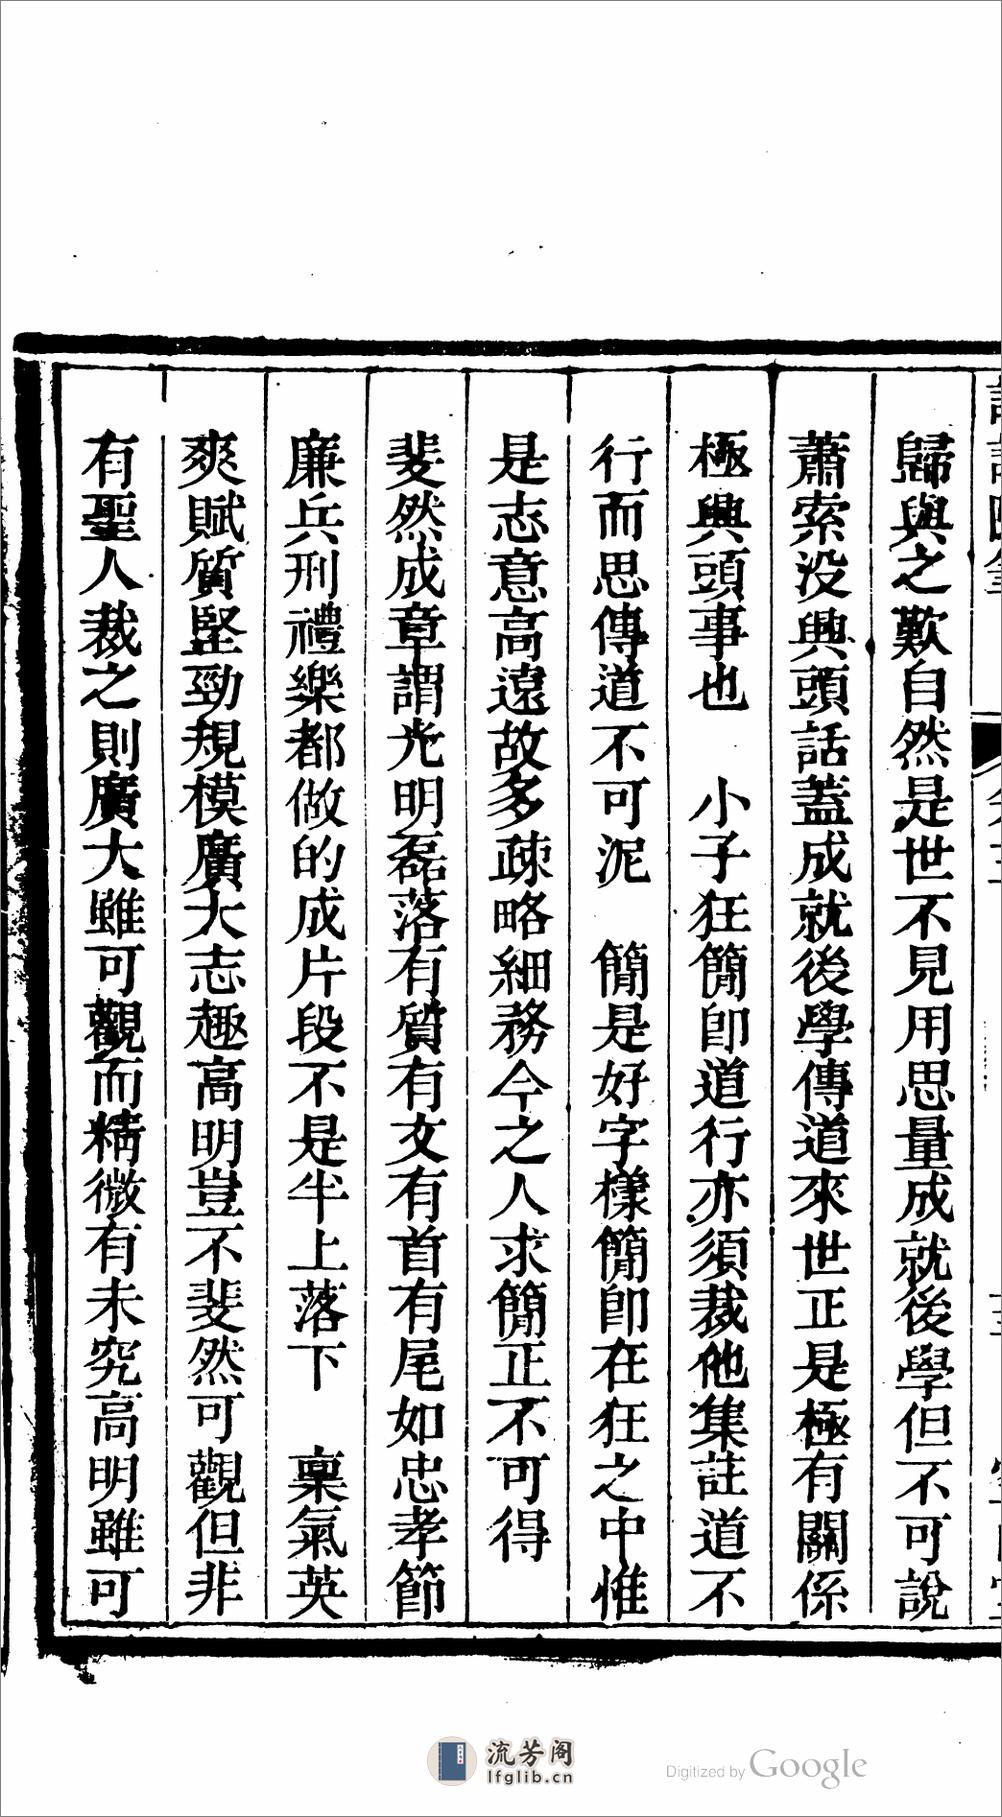 歸與之歎自然是世不見用思量成就後學但不可說
蕭索没興頭話蓋成就後學傳道來世正是極有關係
極興頭事也　小子狂簡卽道行亦須裁他集註道不
行而思傳道不可泥　簡是好字樣簡卽在狂之中惟
是志意高遠故多疎略細務今之人求簡正不可得
斐然成章謂光明磊落有質有文有首有尾如忠孝節
廉兵刑禮樂都做的成片段不是半上落下　稟氣英
爽賦質堅勁規模廣大志趣高明豈不斐然可觀但非
有聖人裁之則廣大雖可觀而精微有未究高明雖可
流芳阁
lfglib.cn
Digitized by Google